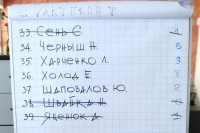 33. Сень Є 1
34. Черныш Н. 6
35. Харченко Л. 3
36. Холод Е 8
37 Шаповалов Ю. 2
38 Швайка Н.
39 Яценюк А 1